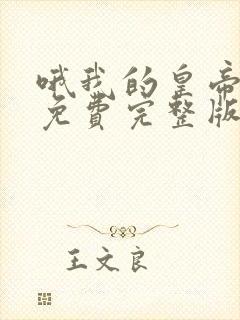 哦我的皇帝
免费完整版
王文良